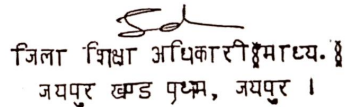 Sd
जिला शिक्षा अधिकारी(माध्य.)
जयपुर खण्ड प्रथम, जयपुर ।